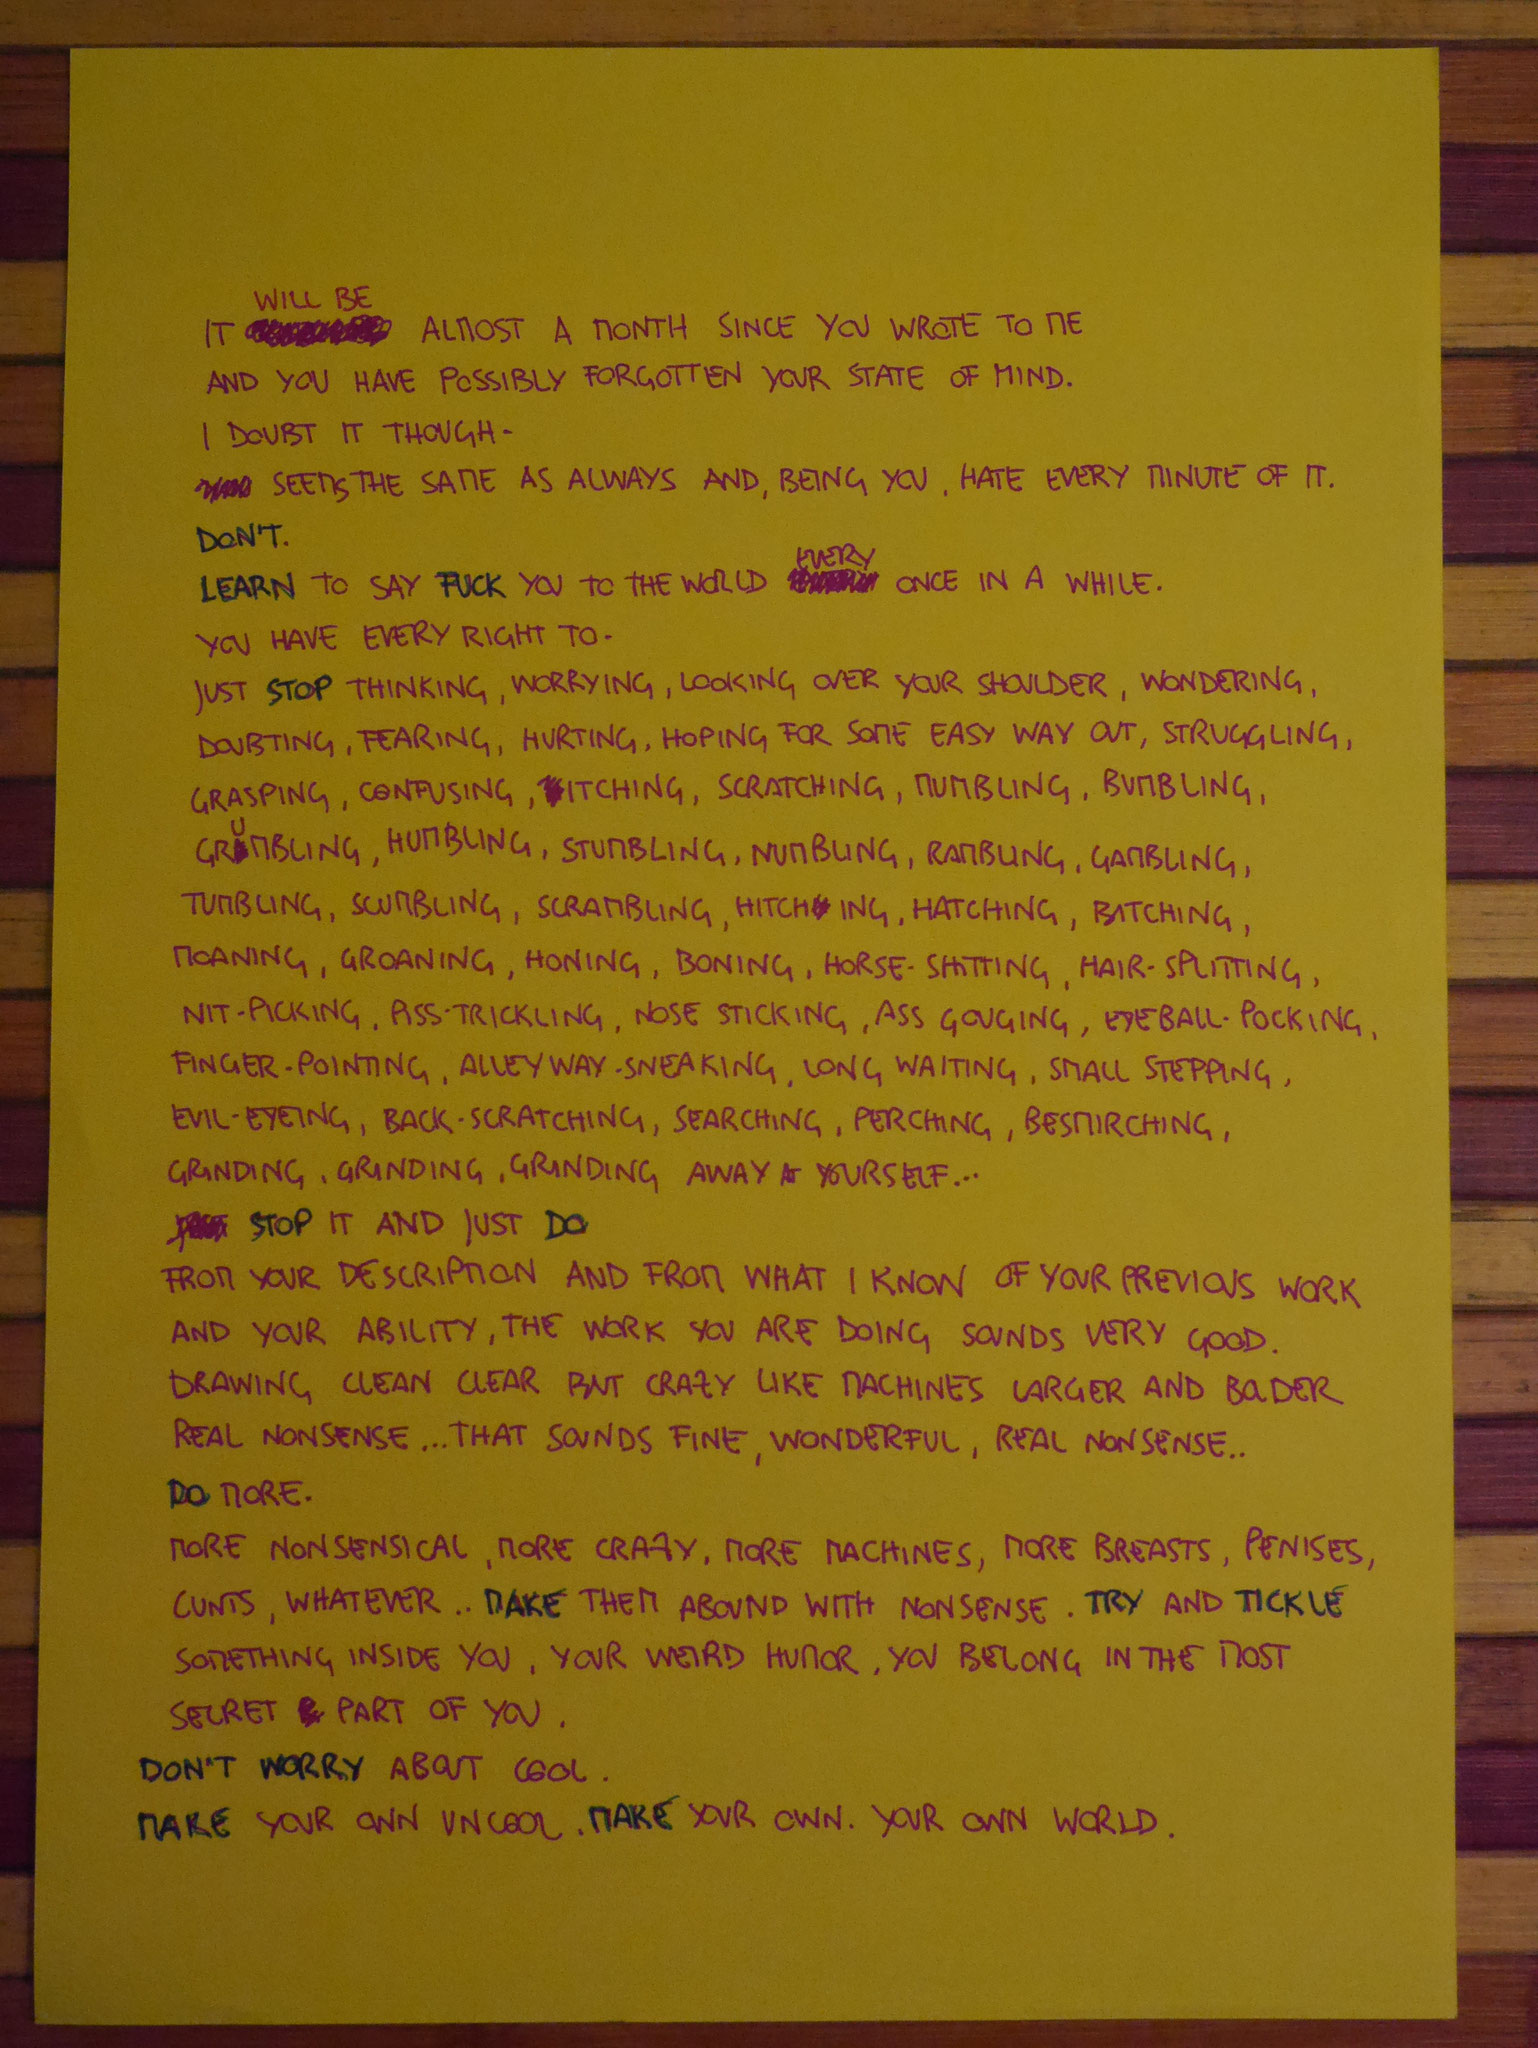 WILL BE
IT ALMOST A MONTH SINCE YOU WROTE TO ME
AND YOU HAVE POSSIBLY FORGOTTEN YOUR STATE OF MIND.
I DOUBT IT THOUGH-
SEEMS THE SAME AS ALWAYS AND, BEING YOU, HATE EVERY MINUTE OF IT.
DON'T.
EVERY
LEARN TO SAY FUCK YOU TO THE WORLD ONCE IN A WHILE.
YOU HAVE EVERY RIGHT TO.
JUST STOP THINKING, WORRYING, LOOKING OVER YOUR SHOULDER, WONDERING,
DOUBTING, FEARING, HURTING, HOPING FOR SOME EASY WAY OUT, STRUGGLING,
GRASPING, CONFUSING, ITCHING, SCRATCHING, MUMBLING, BUMBLING,
GRUMBLING, HUMBLING, STUMBLING, NUMBLING, RAMBLING, GAMBLING,
TUMBLING, SCUMBLING, SCRAMBLING, HITCHING, HATCHING, BITCHING,
MOANING, GROANING, HONING, BONING, HORSE-SHITTING, HAIR-SPLITTING,
NIT-PICKING, PISS-TRICKLING, NOSE STICKING, ASS GOUGING, EYEBALL-POCKING,
FINGER-POINTING, ALLEYWAY-SNEAKING, LONG WAITING, SMALL STEPPING,
EVIL-EYEING, BACK-SCRATCHING, SEARCHING, PERCHING, BESMIRCHING,
GRINDING, GRINDING, GRINDING AWAY AT YOURSELF...
STOP IT AND JUST DO
FROM YOUR DESCRIPTION AND FROM WHAT I KNOW OF YOUR PREVIOUS WORK
AND YOUR ABILITY, THE WORK YOU ARE DOING SOUNDS VERY GOOD.
DRAWING CLEAN CLEAR BUT CRAZY LIKE MACHINES LARGER AND BOLDER
REAL NONSENSE...THAT SOUNDS FINE, WONDERFUL, REAL NONSENSE..
DO MORE.
MORE NONSENSICAL, MORE CRAZY, MORE MACHINES, MORE BREASTS, PENISES,
CUNTS, WHATEVER.. MAKE THEM ABOUND WITH NONSENSE. TRY AND TICKLE
SOMETHING INSIDE YOU, YOUR WEIRD HUMOR, YOU BELONG IN THE MOST
SECRET PART OF YOU.
DON'T WORRY ABOUT COOL.
MAKE YOUR OWN UNCOOL. MAKE YOUR OWN. YOUR OWN WORLD.